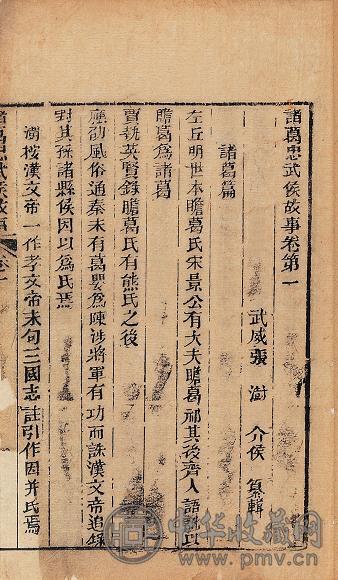 諸葛忠武侯故事卷第一
武威張澍介侯纂輯
諸葛篇
左丘明世本瞻葛氏宋景公有大夫瞻葛祁其後齊人語訛以
瞻葛爲諸葛
賈執英賢錄瞻葛氏有熊氏之後
應劭風俗通秦末有葛嬰爲陳涉將軍有功而誅漢文帝追錄
封其孫諸縣侯因以爲氏焉
澍按漢文帝一作孝文帝末句三國志註引作因并氏焉
諸葛忠武侯故事 卷一
中华收藏网
www.pmv.cn